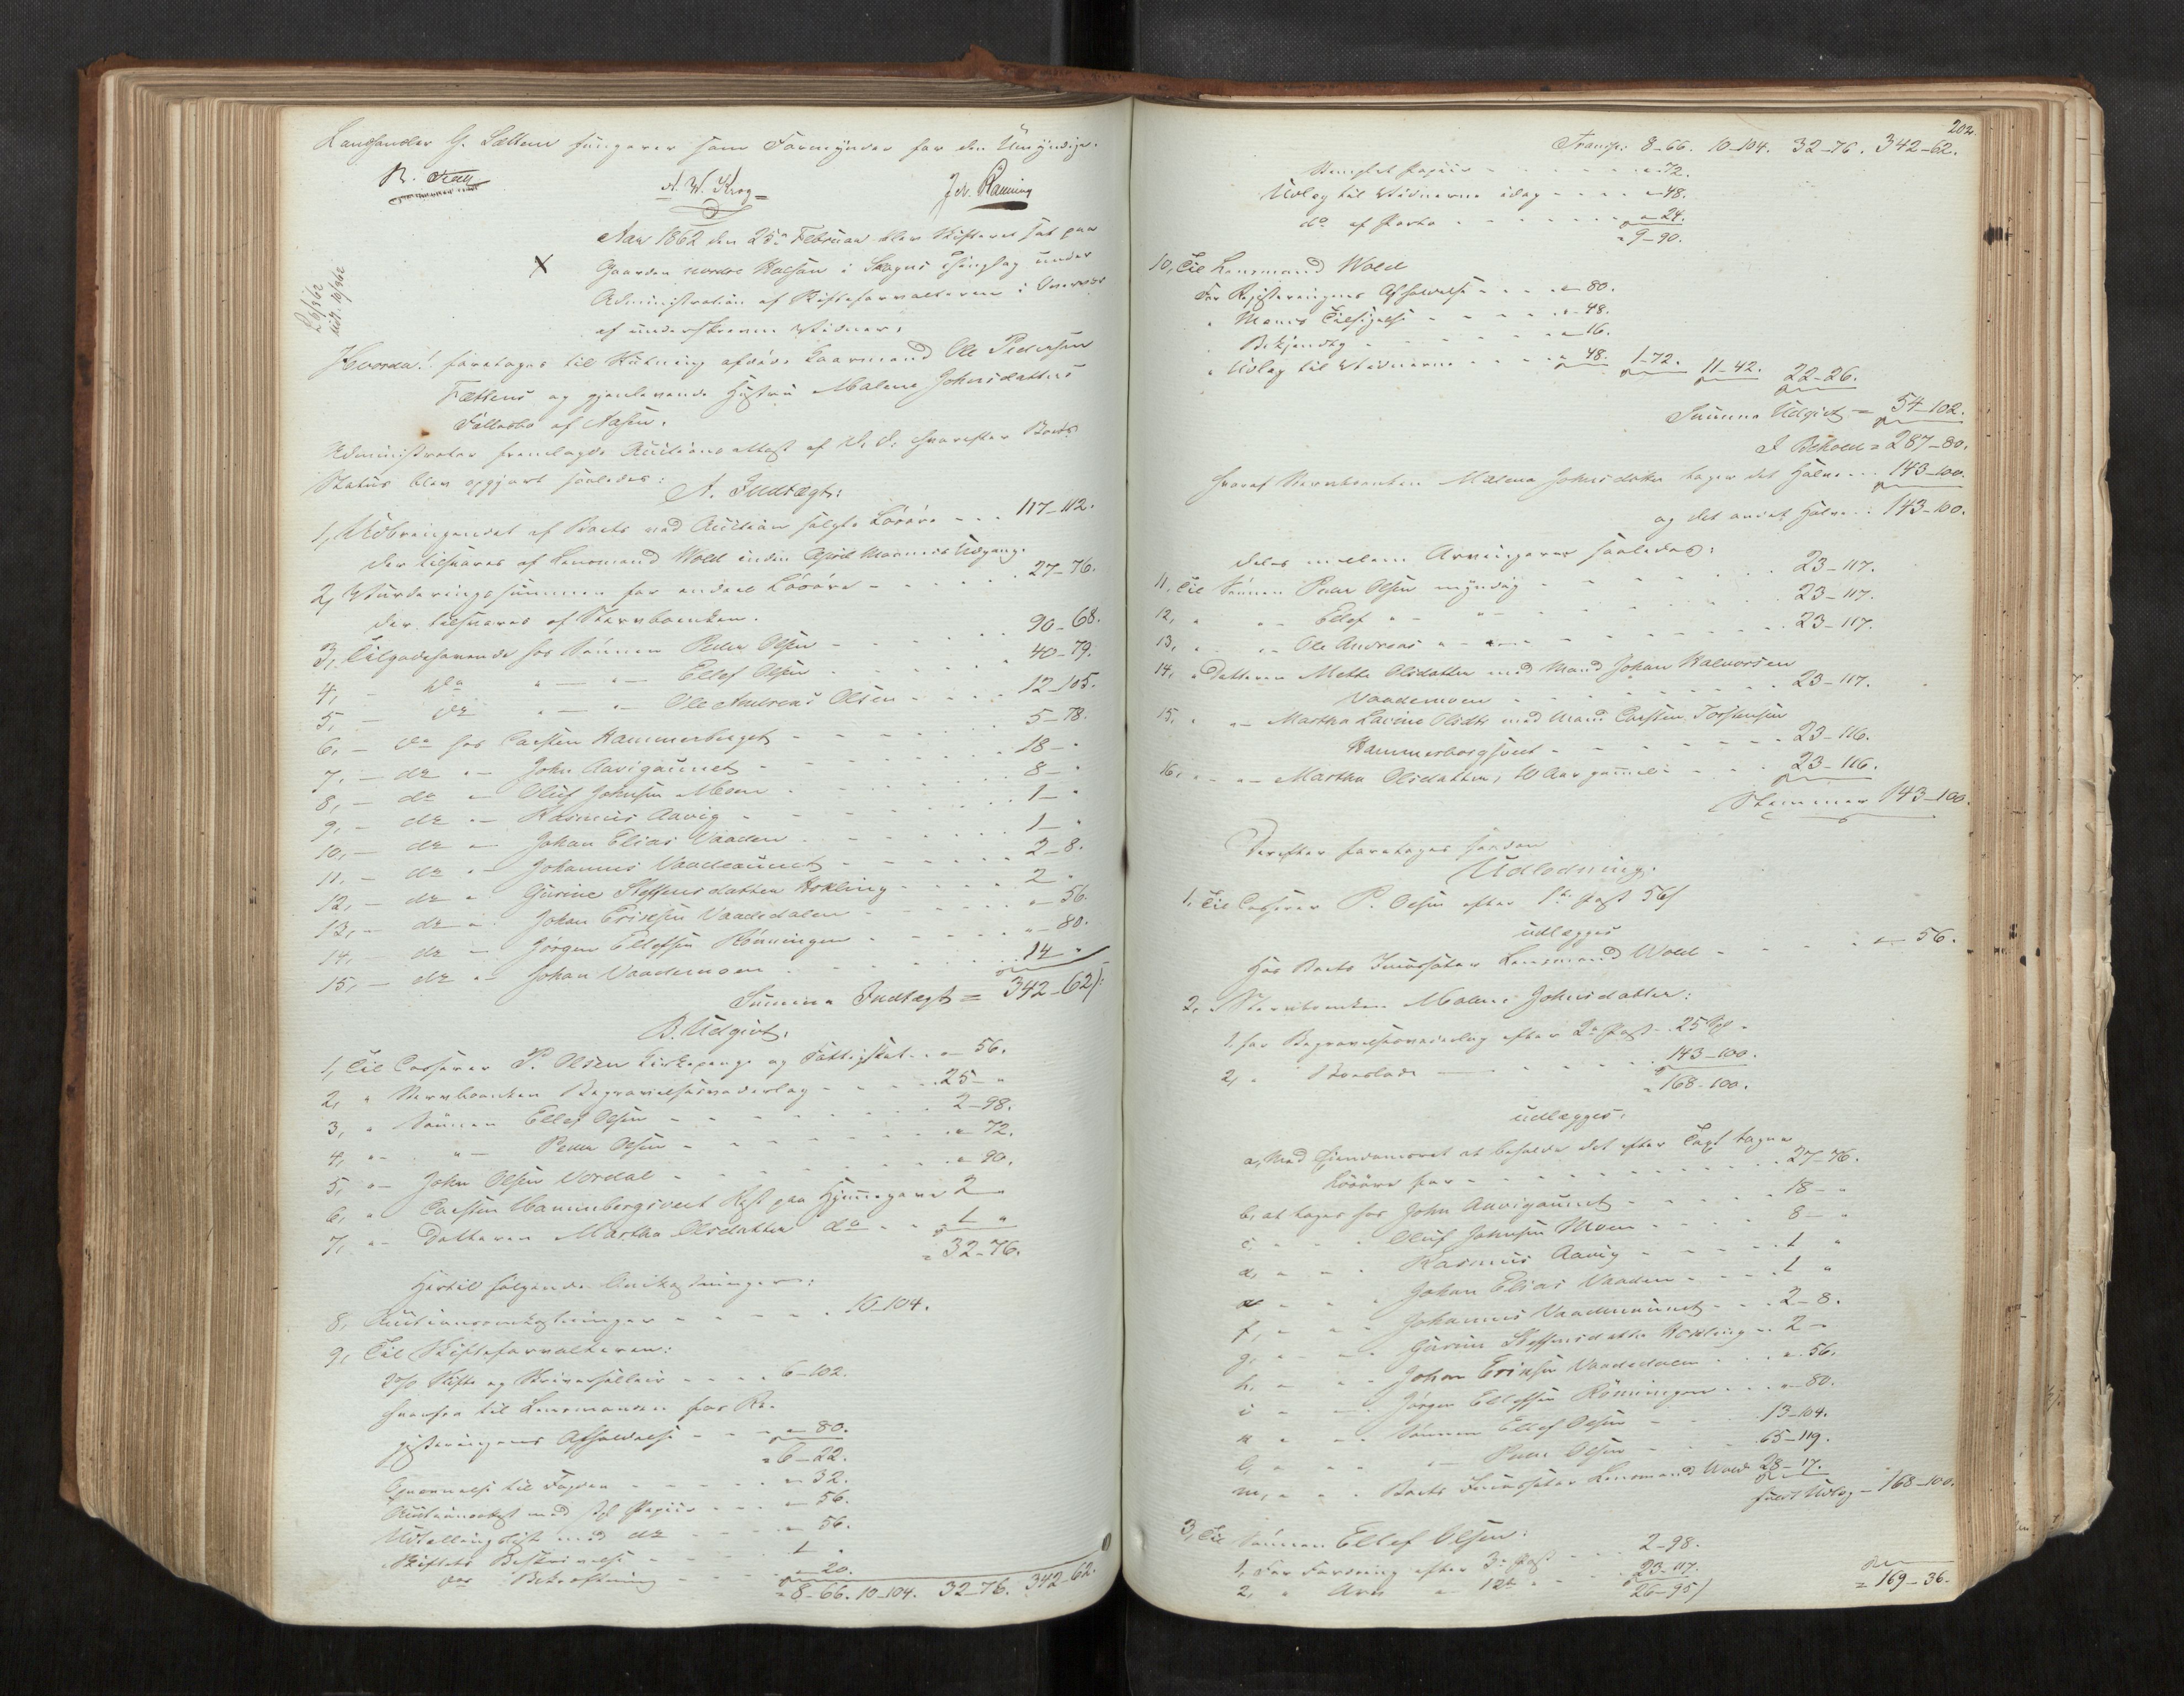 Landhandler G. Sættem fungerer som Formynder for den Umyndige.
A. W. Krog
Joh. Rånning
Aar 1862 den 25de Februar blev Skifteret sat paa
Gaarden nordre Halsan i Skogns Thinglag under
Administration af Skifteforvalteren i Overvær
af underskrevne Vidner,
Hvorda! foretages til Slutning afdøde Gaarmand Ole Pedersen
Fættens og gjenlevende Hustru Malene Johnsdatters
Fællesbo af Aasen.
Administrator fremlagde Auctionsattest af D. D: hvorefter Boets
Status blev opgjort saaledes:
A. Indtægt:
1, Udbringendet af Boets ved Auction solgte Løsøre - - - 117-112.
der tilsvares af Lensmand Wold inden April Maaneds Udgang.
2, Vurderingssummen for endeel Løsøre - - - 27-76.
der tilsvares af Stervboenken.
3, Tilgodehavende hos Sønnen Peder Olsen - - - 90-68.
4, - do " - " - Ellef Olsen - - - 40-79.
5, - do " - " - Ole Andreas Olsen - - - 12-105.
6, - do hos Carsten Hammerberget - - - 5-78.
7, - do " - John Aavigaunet - - - 18- "
8, - do " - Oluf Johnsen Moen - - - 8- "
9, - do " - Rasmus Aavig - - - 1- "
10, - do " - Johan Elias Vaaden - - - 1- "
11, - do " - Johannes Vaadeaunet - - - 2-8.
12, - do " Gurine Steffensdatter Hokling - - - 2 "
13, - do " Johan Eriksen Vaadedalen - - - " - 56.
14, - do " - Jørgen Ellefsen Rønningen - - - " - 80.
15, - do " - Johan Vaademoen - - - 14 "
Summa Indtægt = 342-62/:
B. Udgivt,
1, Til Casserer P. Olsen Kirkepenge og Fattigskat - " - 56.
2, " Stervboenken Begravelsesvederlag - - - 25- "
3, " Sønnen Ellef Olsen - - - 2-98.
4, " - " - Peder Olsen - - - " - 72.
5, " - John Olsen Vordal - - - " - 90.
6, " Carsten Hammerbergsveet Rest paa Hjemmegave 2 "
7, " - Datteren Martha Olsdatter do - - 1 "
= 32-76.
Hertil følgende Omkostninger:
8, Auctionsomkostninger - - - 10-104.
9, Til Skifteforvalteren:
2% Skifte og Skriversallair - - - 6-102.
hvorfra til Lensmanden for Re-
gistreringens Afholdelse - - - " - 80.
= 6-22.
Opnevnelse til Fogden - - - " - 32.
Auctionsattest med st Papiir - - - " - 56.
Udtællingsliste med do - - - " - 56.
Skiftets Beskrivelse - - - 1 "
dets Bekræftning - - - " - 20.
= 8-66. 10-104. 32-76. 342-62.
202.
Transp: 8-66. 10-104. 32-76. 342-62.
Stemplet Papiir - - - " - 72.
Udlæg til Vidnerne idag - - - " - 48.
do af Porto - - - " - 24.
= 9-90.
10, Til Lensmand Wold
For Registreringens Afholdelse - - - " - 80.
" Mænds Tilsigelse - - - " - 48.
" Bekjendtg - - - " - 16.
" Udlæg til Vidnerne - - - " 48. 1-72. 11-42. 22-26.
Summa Udgivt = 54-102.
I Behold = 287-80.
hvoraf Stervboenken Malena Johnsdatter tager det Halve - - - 143-100.
og det andet Halve - : 143-100.
deles mellem Arvingerne saaledes:
11, Til Sønnen Peder Olsen myndig - - - 23-117.
12, " " - Ellef " - " - - - 23-117.
13, " " - Ole Andreas " - - - 23-117.
14, " Datteren Mette Olsdatter med Mand Johan Halvorsen
Vaademoen - - - 23-117.
15, " " - Martha Lavine Olsdtr med Mand Carsten Torstensen
Hammerbergsveet - - - 23-116.
16, " " - Martha Olsdatter, 10 Aar gammel - - - 23-116.
Stemmer 143-100.
Derefter foretages saadan
Udlodning:
1, Til Casserer P. Olsen efter 1ste Post 56/
udlægges
hos Boets Incassator Lensmand Wold - - - " - 56.
2, Stervboenken Malene Johnsdatter:
1, for Begravelsesvederlag efter 2den Post - 25 "
2, " Boeslod - - - 143-100.
= 168-100.
udlægges,
a, Med Eiendomsret at beholde det efter Taxt tagne
Løsøre for - - - 27-76.
b, at tages hos John Aavigaunet - - - 18- "
c, " " " Oluf Johnsen Moen - - - 8- "
d, " " " Rasmus Aavig - - - 1 "
e " " " Johan Elias Vaaden - - - 1 "
f, " " " Johannes Vaadeaunet - - - 2-8.
g, " " " Gurine Steffensdatter Hokling - - 2 "
h, " " " Johan Eriksen Vaadedalen - - - " 56.
i " " " Jørgen Ellefsen Rønningen - - - " - 80.
k " " " Sønnen Ellef Olsen - - - 13-104.
l, " " " " - Peder Olsen - - - 65-119.
m, " " " Boets Incassator Lensmand Wold 28-17.
fuldt Udlæg - 168-100.
3, Til Sønnen Ellef Olsen:
1, For Fordring efter 3die Post - - - 2-98.
2, " Arv " 12te " - - - 23-117.
26-95/
= 169-36.